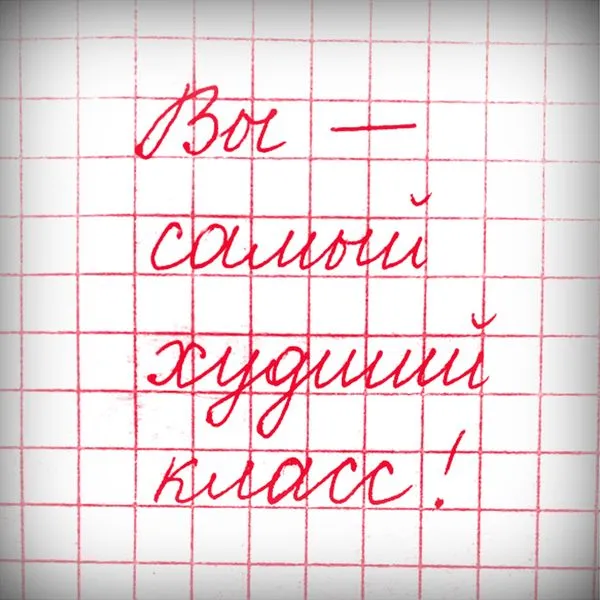 Вы —
самый
худший
класс!